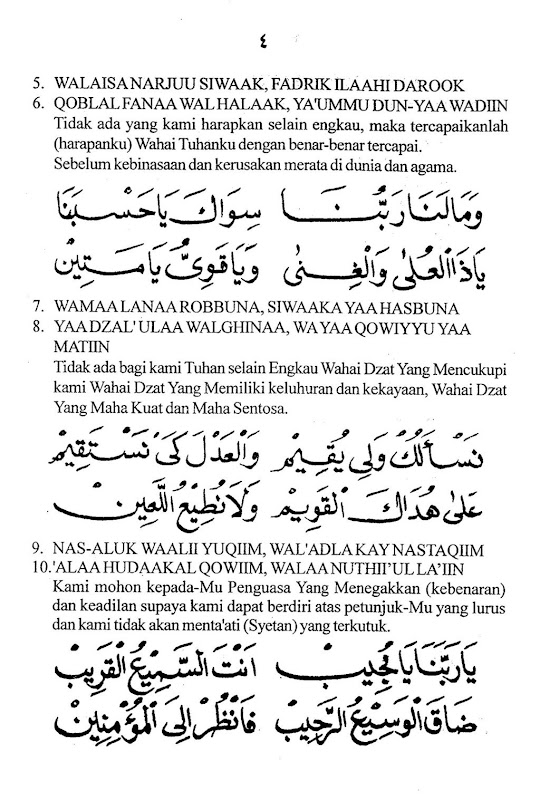 ٤
5. WALAISA NARJUU SIWAAK, FADRIK ILAAHI DAROOK
6. QOBLAL FANAA WAL HALAAK, YA'UMMU DUN-YAA WADIIN
Tidak ada yang kami harapkan selain engkau, maka tercapaikanlah
(harapanku) Wahai Tuhanku dengan benar-benar tercapai.
Sebelum kebinasaan dan kerusakan merata di dunia dan agama.
وَمَالَنَا رَبُّنَا سِوَاكَ يَا حَسْبَنَا
يَاذَاالْعُلىٰ وَالْغِنىٰ وَيَاقَوِىُّ يَامَتِيْن
7. WAMAA LANAA ROBBUNA, SIWAAKA YAA HASBUNA
8. YAA DZAL' ULAA WALGHINAA, WA YAA QOWIYYU YAA
MATIIN
Tidak ada bagi kami Tuhan selain Engkau Wahai Dzat Yang Mencukupi
kami Wahai Dzat Yang Memiliki keluhuran dan kekayaan, Wahai Dzat
Yang Maha Kuat dan Maha Sentosa.
نَسْأَلُكْ وَلِي يُقِيْم وَالْعَدْلَ كَىْ نَسْتَقِيْم
عَلىٰ هُدَاكَ الْقَوِيْم وَلَا نُطِيْعُ اللَّعِيْن
9. NAS-ALUK WAALII YUQIIM, WAL'ADLA KAY NASTAQIIM
10.'ALAA HUDAAKAL QOWIIM, WALAA NUTHII'UL LA'IIN
Kami mohon kepada-Mu Penguasa Yang Menegakkan (kebenaran)
dan keadilan supaya kami dapat berdiri atas petunjuk-Mu yang lurus
dan kami tidak akan menta'ati (Syetan) yang terkutuk.
يَارَبَّنَا يَامُجِيْب اَنْتَ السَّمِيْعُ الْقَرِيْب
ضَاقَ الْوَسِيْعُ الرَّحِيْب فَانْظُرْ اِلَى الْمُؤْمِنِيْن